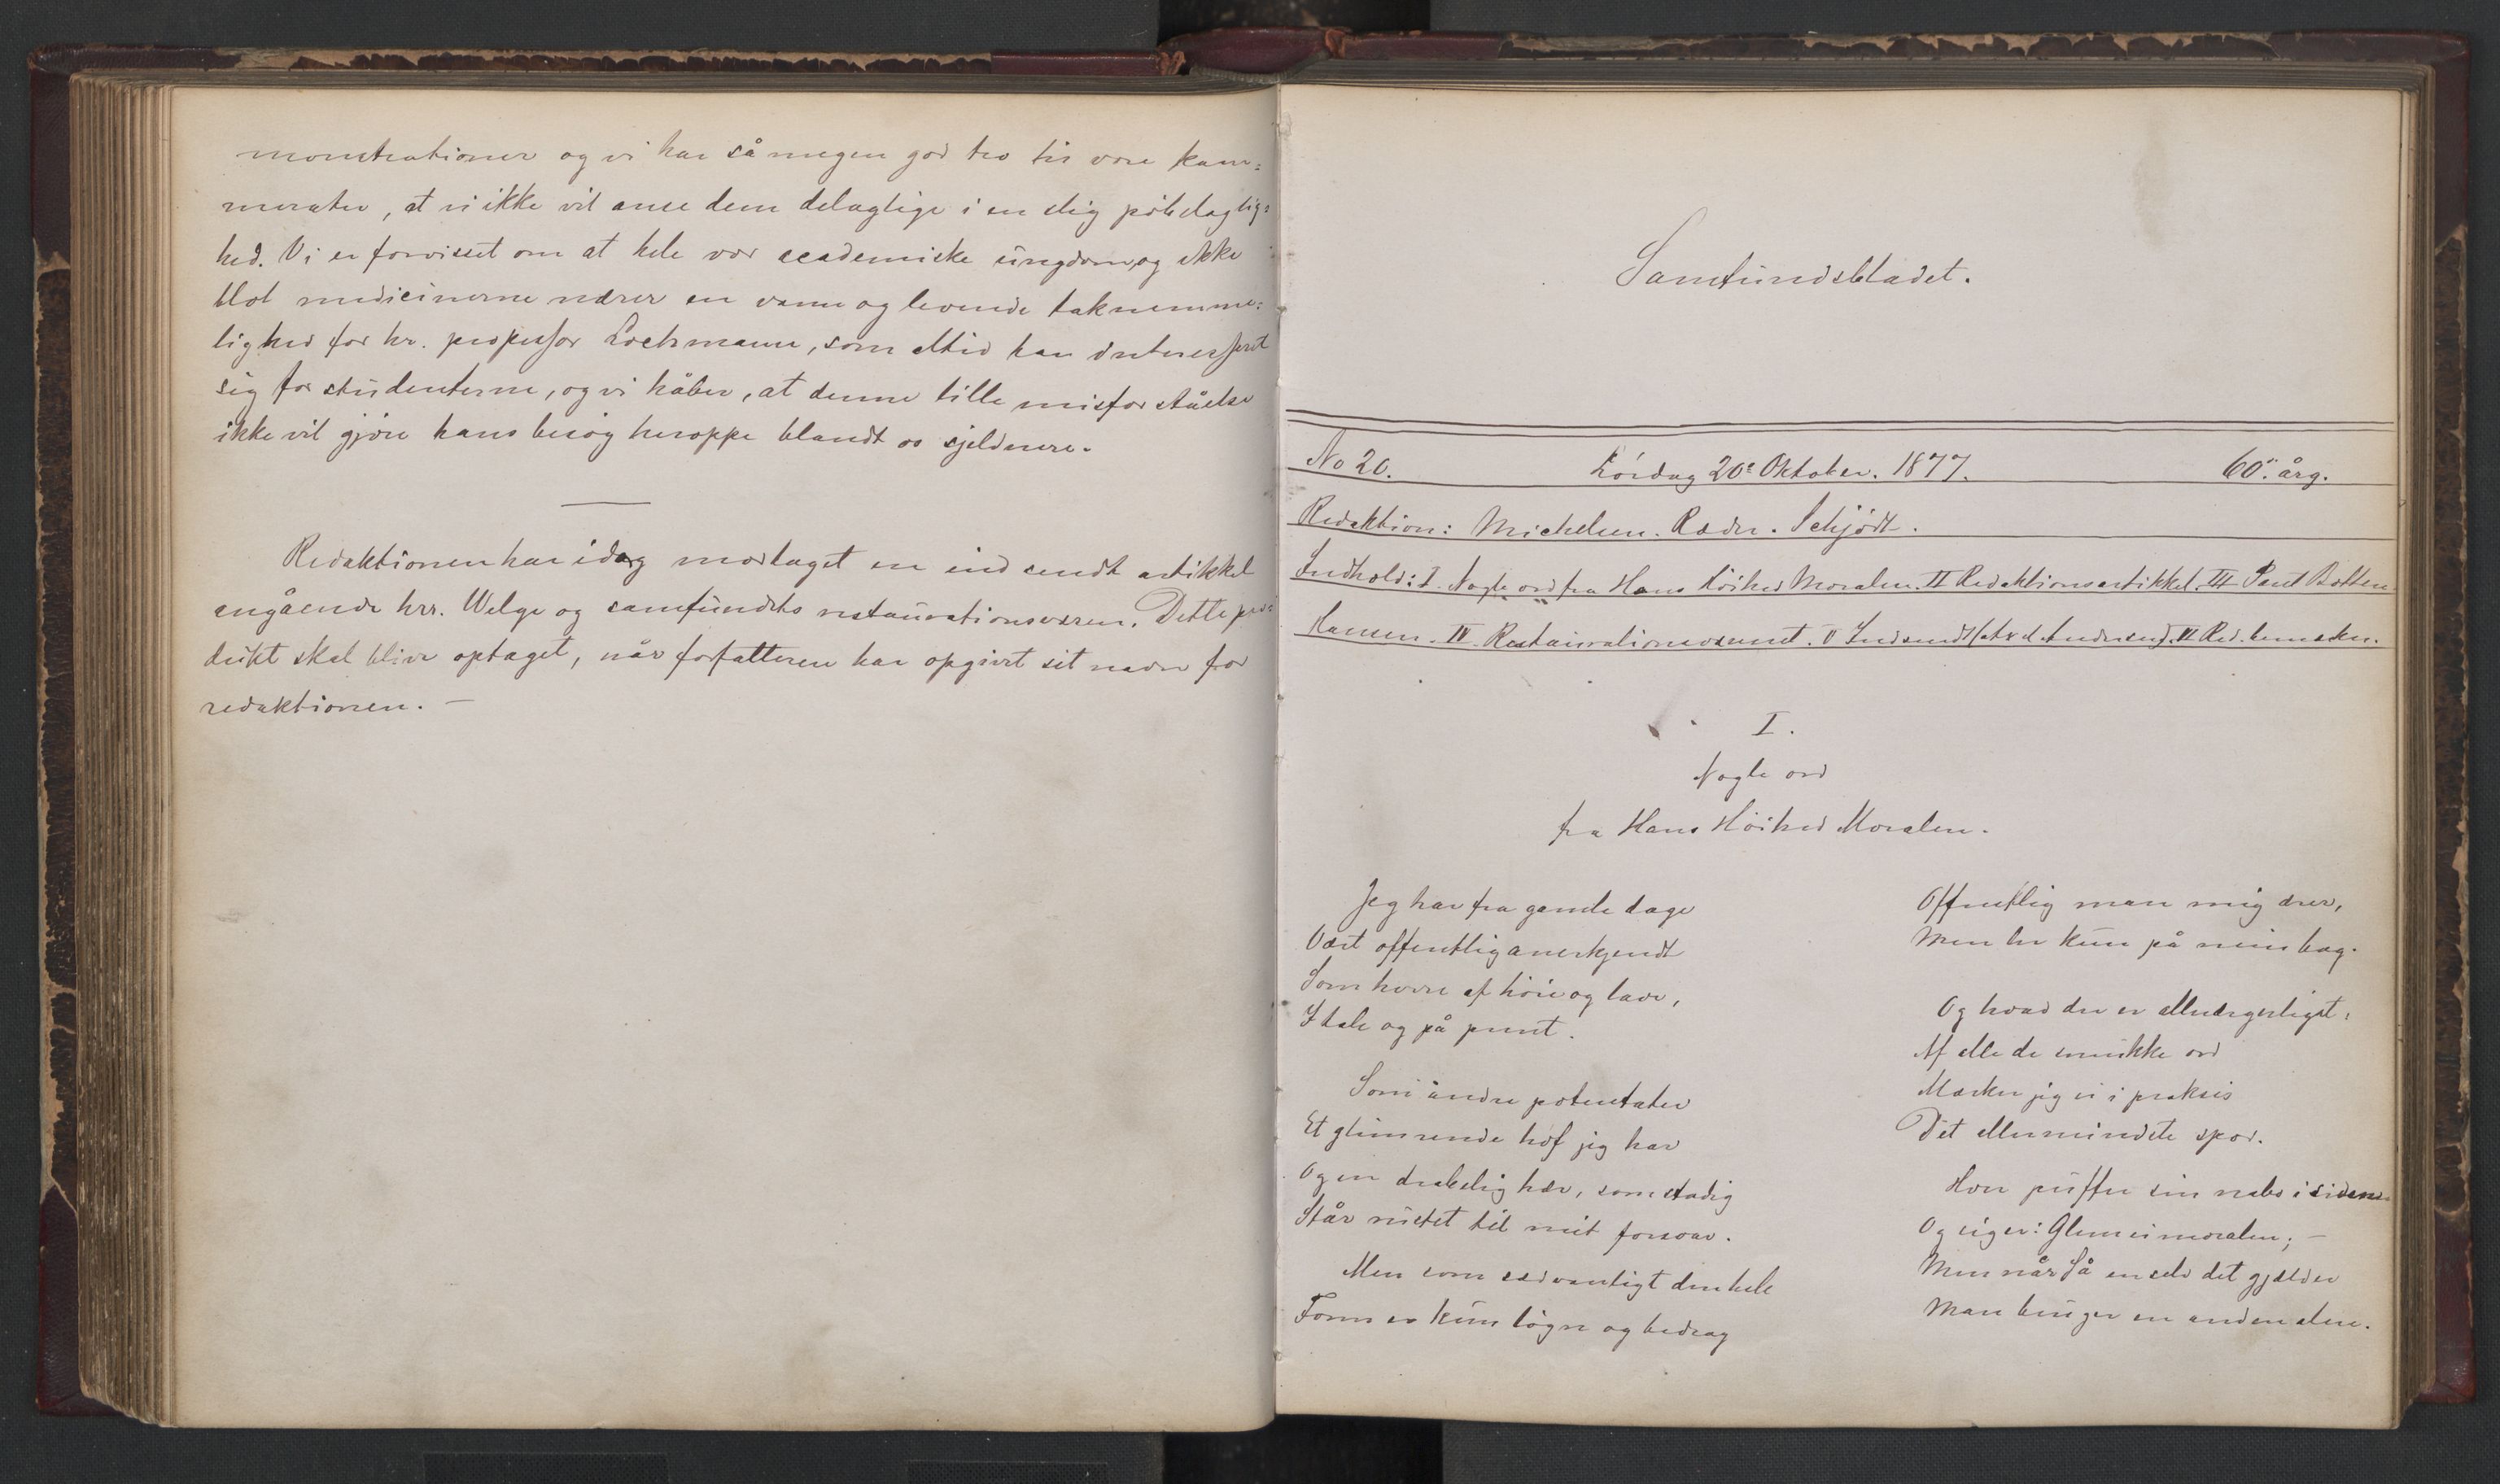 monstrationer og vi har så megen god tro til vore kam=
merater, at vi ikke vil anse dem delagtige i en slig pöbelagtig=
hed. Vi er forvisset om at hele vor academiske ungdom, og ikke
blot medicinerne nærer en varm og levende taknemme=
lighed for hr. professor Lochmann, som altid har interesseret
sig for studenterne, og vi håber, at denne lille misforståelse
ikke vil gjöre hans besög heroppe blandt os sjeldnere.
Redaktionen har idag modtaget en indsendt artikkel
angående hrr. Welge og samfundets restaurationsvæsen. Dette pro=
dukt skal blive optaget, når forfatteren har opgivet sit navn for
redaktionen. —
Samfundsbladet.
No 20. Lördag 20de Oktober. 1877. 60. årg.
Redaktion: Michelsen. Ræder. Schjödt.
Indhold: I. Nogle ord fra Hans Höihed Moralen. II Redaktionsartikkel. III Botten
Hansen. IV. Restaurationsvæsenet. V Indsendt VI Red. bemærkn.
I.
Nogle ord
fra Hans Höihed Moralen.
Jeg har fra gamle dage
Vært offentlig anerkjendt
Som herre af höie og lave,
I tale og på prent.
Som andre potentater
Et glimrende hof jeg har
Og en drabelig hær, som stadig
Står rustet til mit forsvar.
Men som sædvanligt den hele
Form er kun lögn og bedrag
Offentlig man mig ærer,
Men ler kun på min bag.
Og hvad der er allerærgerligst:
Af alle de smukke ord
Mærker jeg ei i praksis
Det allermindste spor.
Hver puffer sin nabo i siden
Og siger: Glem ei moralen; —
Men når så en selv det gjælder
Man bruger en anden alen.